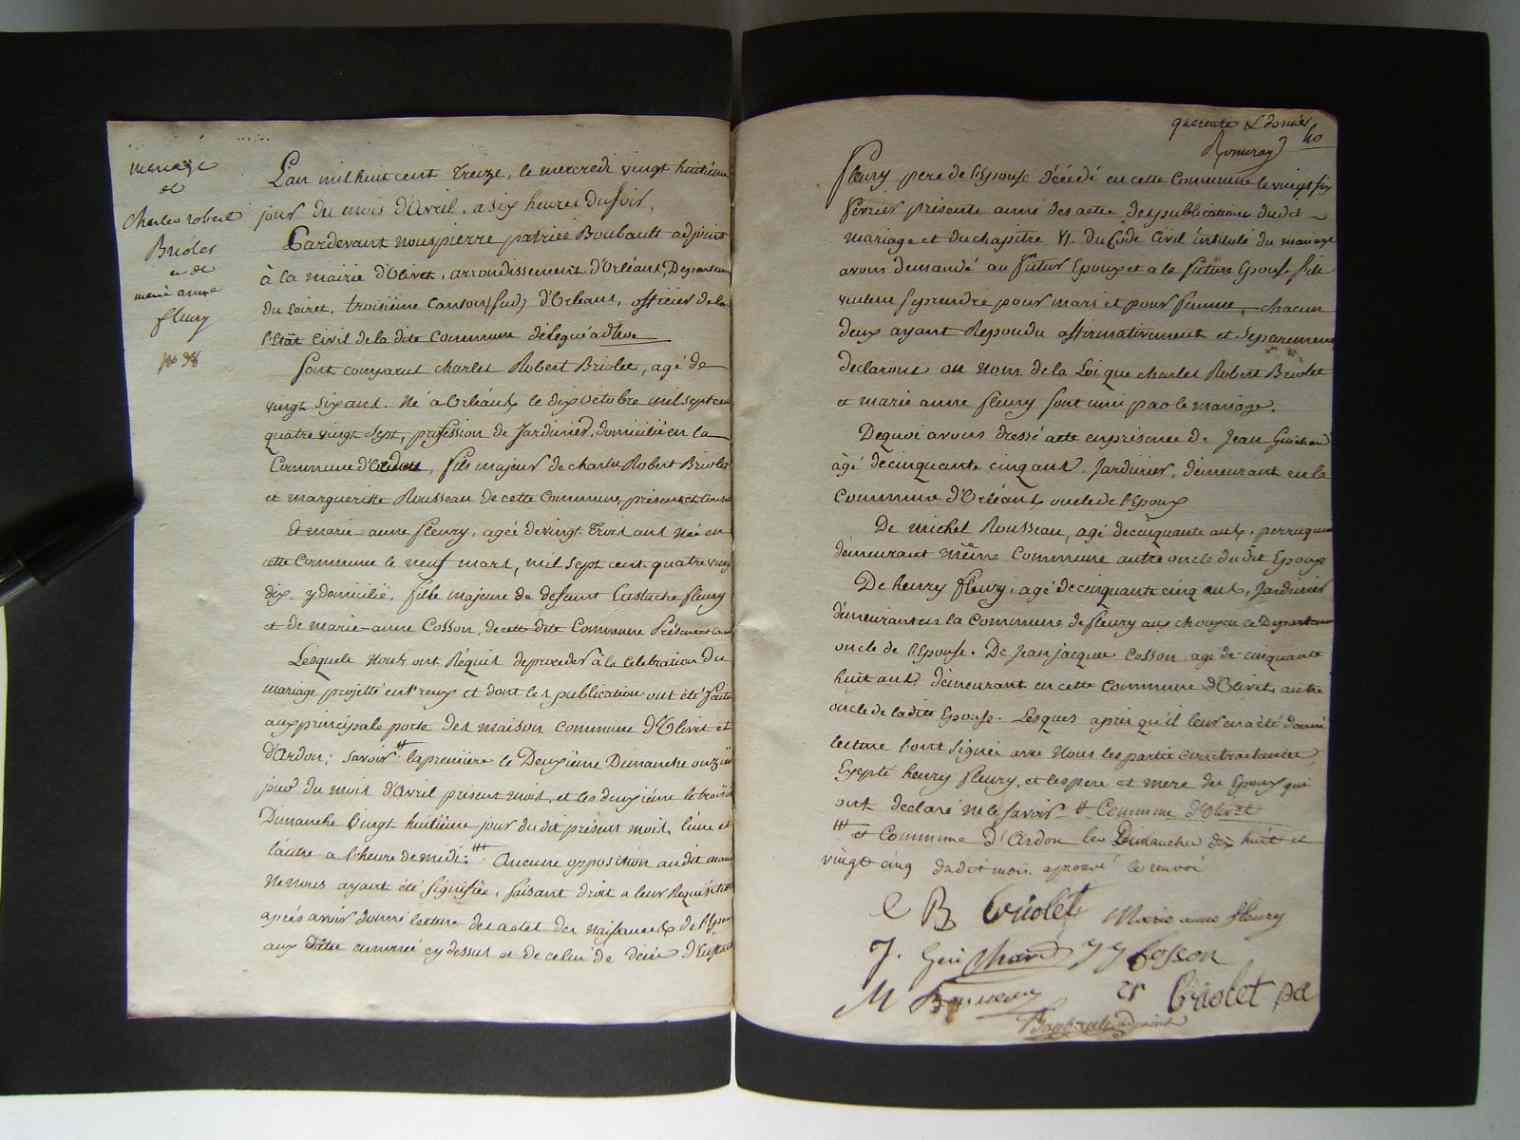 mariage
et
charles robert
Briolet
et de
marie anne
fleury
L'an mil huit cent treize, le mercredi vingt huitième
jour du mois d'Avril, a six heures du soir,
Pardevant nous pierre patrice Boubault adjoint
à la mairie d'Olivet, arrondissement d'Orléans, Departem
du Loiret, troisième canton (sud) d'Orleans, officier de la
l'Etat Civil de la dite Commune délégué adhoc
Sont comparus charles Robert Briolet, agé de
vingt six ans. Né a Orléans le dix octobre mil sept cen
quatre vingt sept, profession de Jardinier, domicilié en la
Commune d', fils majeur de charles Robert Briolet
et margueritte Rousseau de cette Commune, présents
Et marie anne fleury, agée de vingt trois ans Née en
cette Commune le neuf mars, mil sept cent quatre ving
dix, y domicilié, fille majeure de defunt Eustache fleury
et de marie anne Cosson, de cette dite Commune
Lesquels Nous ont Réquis de proceder à la Celebration du
mariage projetté entr'eux et dont les publication ont été faite
aux principale porte des maison commune d'Olivet et
d'Ardon; Savoir la premiere le Deuxième Dimanche onzie
jour du mois d'Avril présent mois, et les deuxième le troisi
Dimanche vingt huitième jour du dit présent mois, l'une et
l'autre a l'heure de midi. Aucune opposition au dit
Ne nous ayant été Signifiée, faisant droit a leur Requisition
après avoir donné lecture des actes des naissances de
aux dits énnoncé cy dessus et de celui de décès d'Eustach
quarante & dernier
40
fleury pere de l'Epouse décédé en cette Commune le vingt six
fevrier présente année des actes des publications du dit
mariage et du chapitre VI. du Code Civil intitulé du mariage
avons demandé au futur Epoux et a la future Epouse s'ils
veulent se prendre pour mari et pour femme, chacun
deux ayant Repondu affirmativement et separement
declarons au nom de la Loi que charles Robert Briolet
et marie anne fleury sont uni par le mariage.
De quoi avons dressé acte en présence de Jean Guichard
âgé de cinquante cinq ans, Jardinier, demeurant en la
Commune d'Orléans, oncle de l'Epoux
De michel Rousseau, agé de cinquante ans, perruquier
demeurant même Commune autre oncle du dit Epoux
De henry fleury, agé de cinquante cinq ans, Jardinier
demeurant en la Commune de fleury aux choux ce Departement
oncle de l'Epouse. De Jean jacque Cosson agé de cinquante
huit ans demeurant en cette Commune d'Olivet, autre
oncle de la dite Epouse. Lesques après qu'il leur en a été donné
lecture l'ont Signé avec Nous les partie contractantes
Exepté henry fleury, et les pere et mere de Epoux qui
ont declaré ne le savoir # Commune d'Olivet
et Commune d'Ardon les Dimanches dix huit et
vingt cinq dudit mois. aprouvé le renvoi
C R Briolet Marie anne fleury
J. Guichard J J Cosson
M Rousseau Briolet
Boubault adjoint